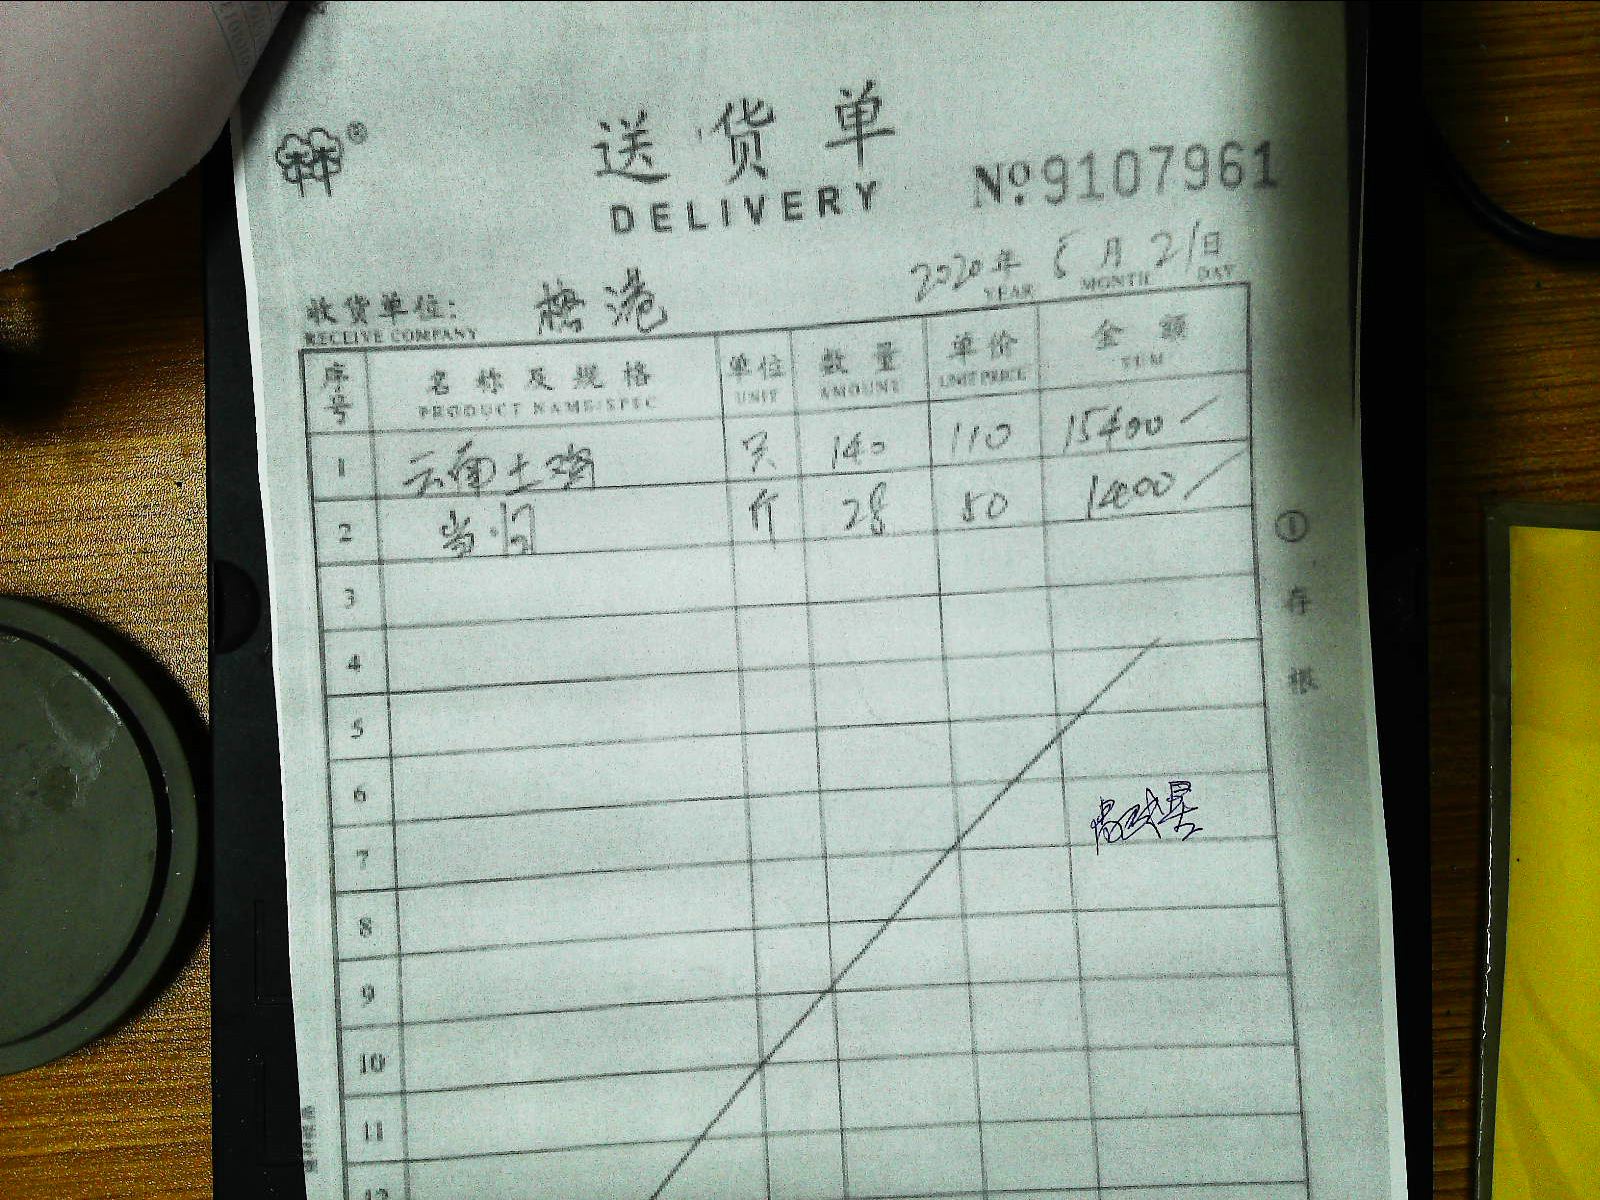 送货单
DELIVERY
№9107961
2020年 5月21日
YEAR MONTH DAY
收货单位:
RECEIVE COMPANY
序号 名称及规格 单位 数量 单价 金额
PRODUCT NAME/SPEC UNIT AMOUNT UNIT PRICE SUM
1 云南土鸡 只 140 110 15400
2 当归 斤 28 50 1400
3
4
5
6
7
8
9
10
11
12
①存根